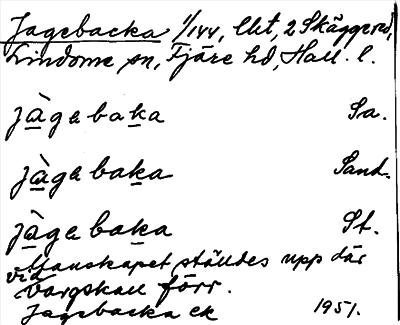 Jagebacka 1/144, Utt, 2 Skäggered,
Lindome sn, Fjäre hd, Hall. l.
jàgebaka Sa.
jàgebaka Sand.
jàgebaka St.
Manskapet ställdes upp där
vid vargskall förr.
Jagebacka ek 1951.